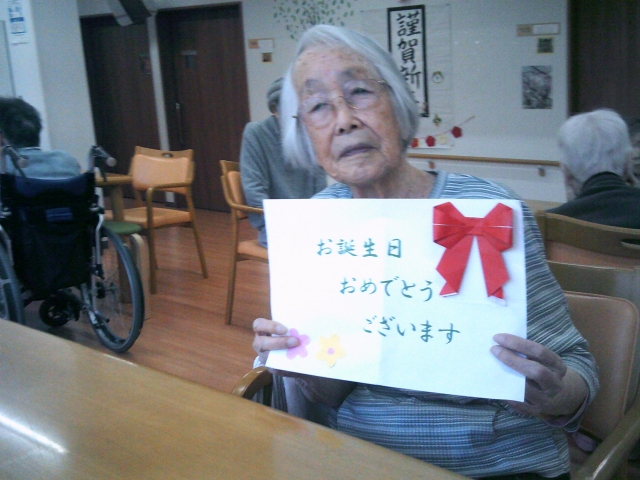 謹賀新
お誕生日
おめでとう
ございます